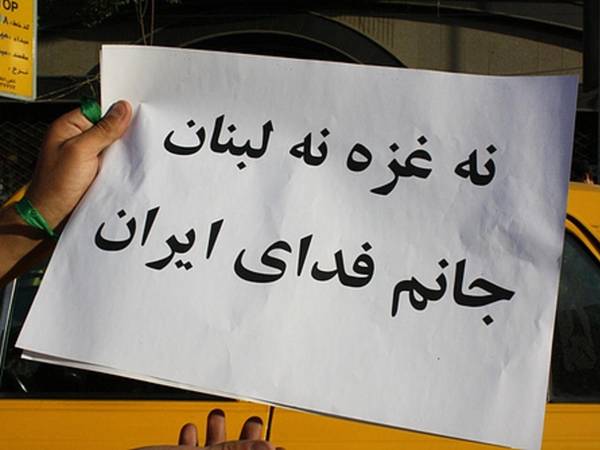 TOP
نه غزه نه لبنان
جانم فدای ایران